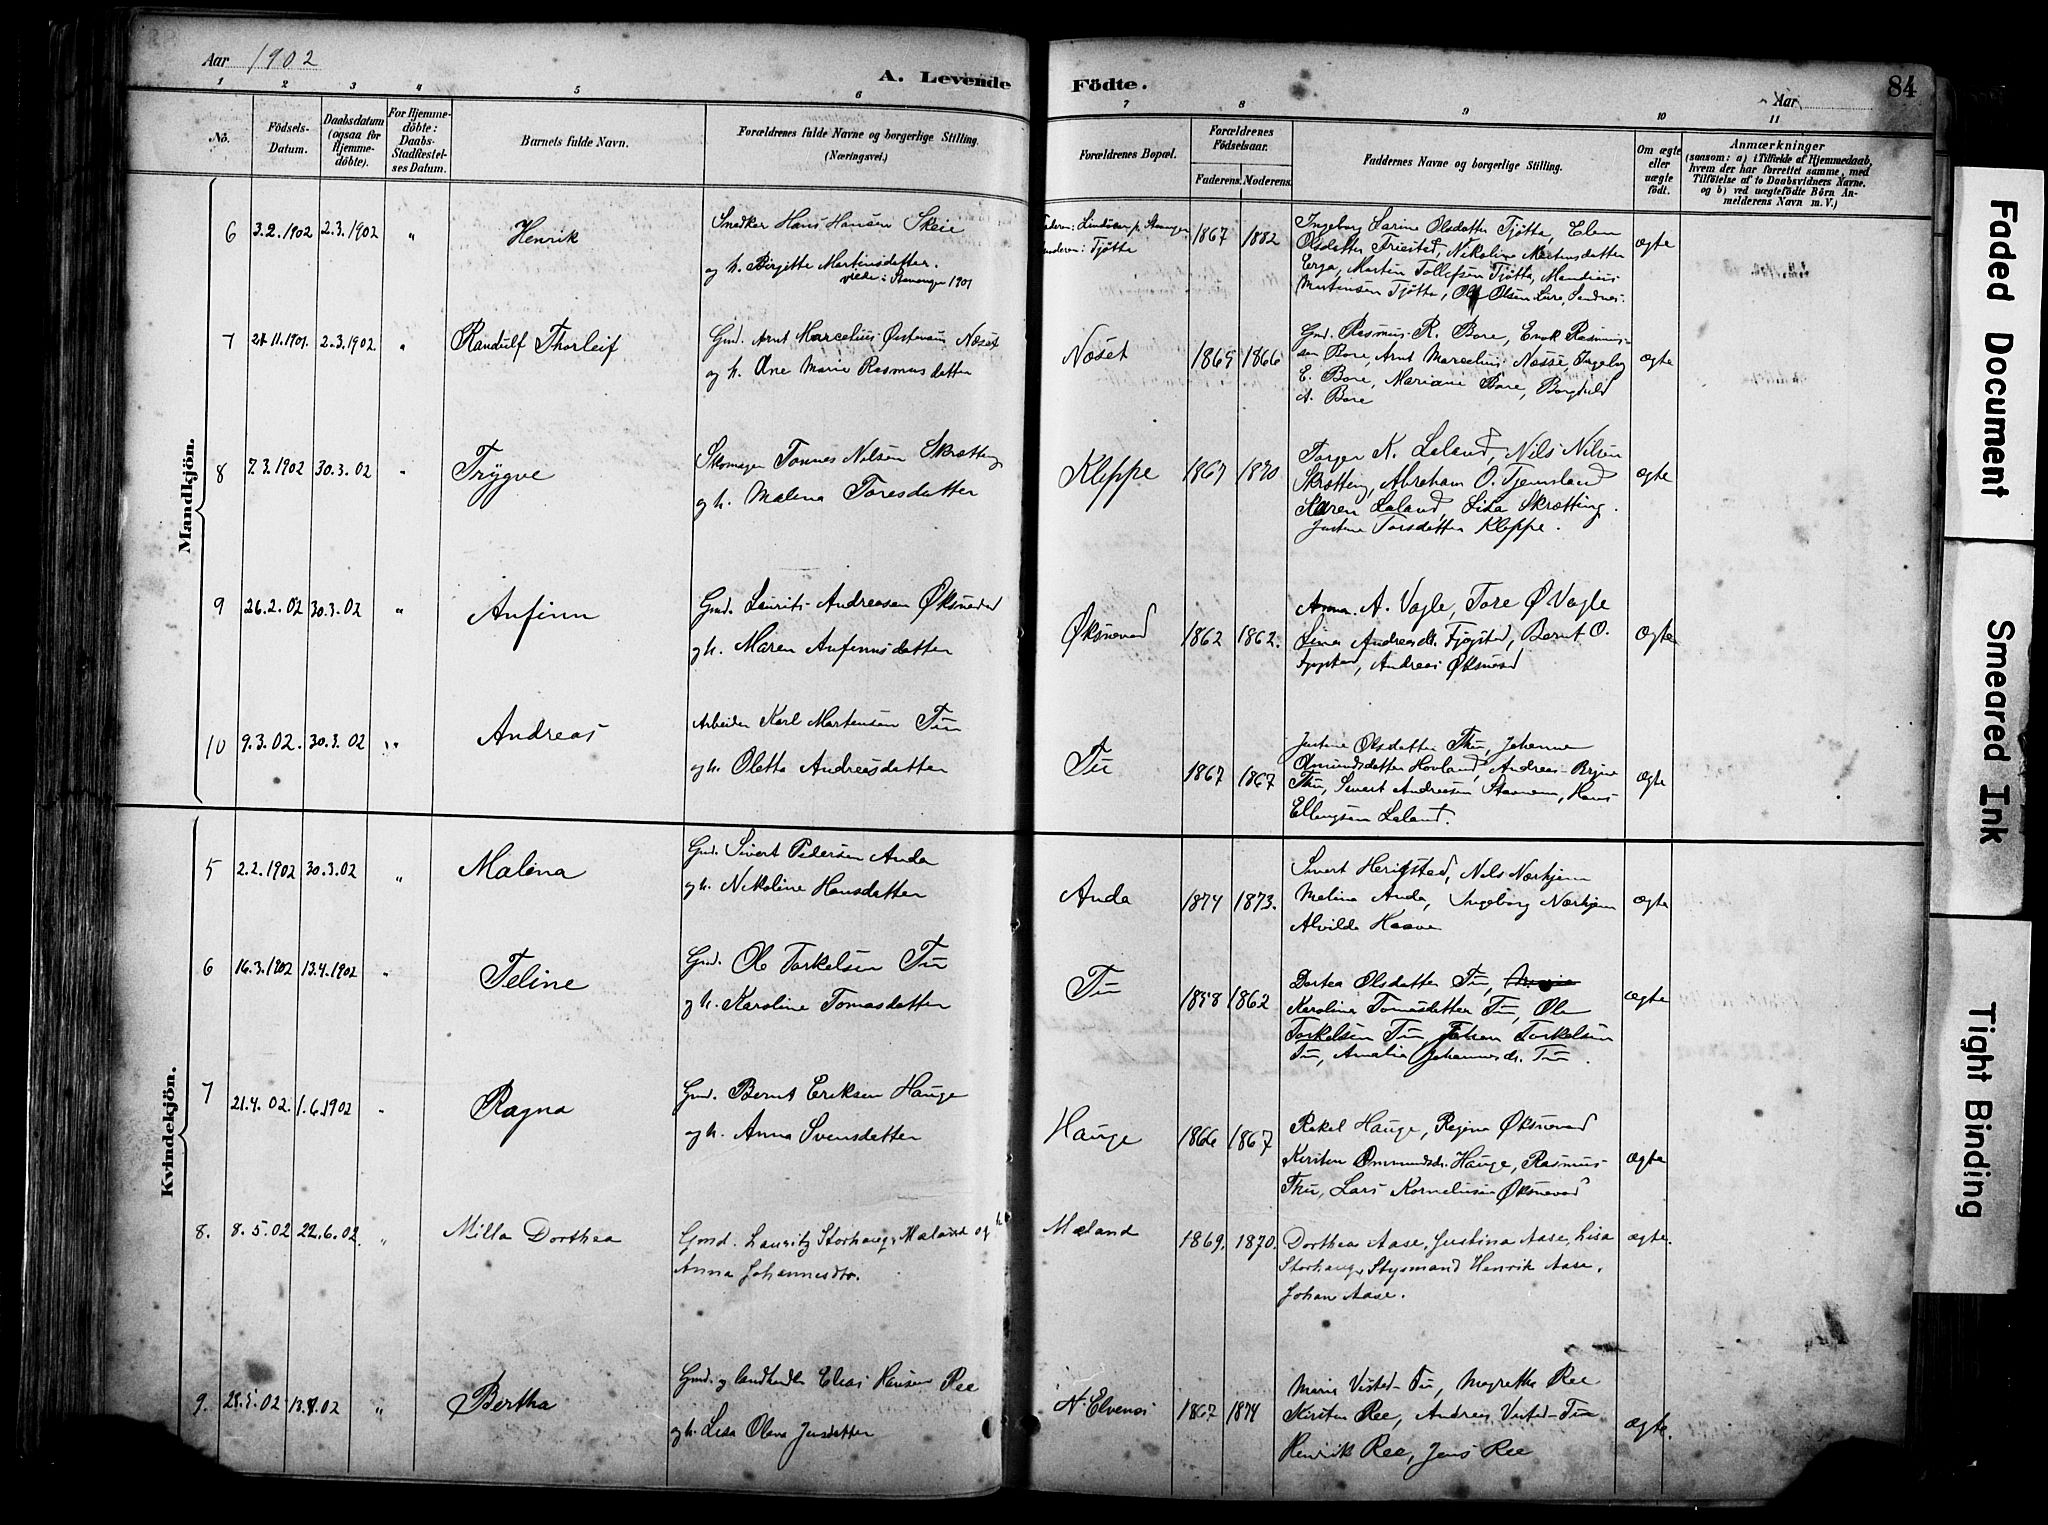 Aar 1902
A. Levende Födte.
Aar
84
1 2 3 4 5 6 7 8 9 10 11
No.
Födsels-Datum.
Daabsdatum (ogsaa for Hjemmedöbte).
For Hjemmedöbte: Daabs-Stadfestelses Datum.
Barnets fulde Navn.
Forældrenes fulde Navne og borgerlige Stilling.
(Næringsvei.)
Forældrenes Bopæl.
Forældrenes Födselsaar.
Faderens. Moderens.
Faddernes Navne og borgerlige Stilling.
Om ægte eller uægte födt.
Anmærkninger
(saasom: a) i Tilfælde af Hjemmedaab, hvem der har forrettet samme, med Tilföielse af to Daabsvidners Navne, og b) ved uægtefödte Börn Anmelderens Navn m. V.)
Mandkjön.
6 3.2.1902 2.3.1902 " Henrik
Snedker Hans Hansen Skeie
og h. Birgitte Martinsdatter.
viede i Stavanger 1901
Tjøtta
1867 1882
Ingeborg Larine Olsdatter Tjøtta, Elen
Olsdatter Friestad, Nikoline Mortensdatter
Erga, Martin Tollefsen Tjøtta, Mandrius
Martensen Tjøtta, Ole Olsen Lure, Sandnes.
ægte
7 21.11.1901. 2.3.1902 " Randulf Thorleif
Gmd. Arnt Marcelius Næset
og h. Ane Marie Rasmusdatter
Næset
1869 1866
Gmd. Rasmus R. Bore, Enok Rasmussen
Bore, Arnt Marcelius Næsse, Ingeborg
E. Bore, Mariane Bore, Borghild
A. Bore
ægte
8 7.3.1902 30.3.02 " Trygve
Skomager Tønnes Nilsen Skrætting
og h. Malena Toresdatter
Kleppe
1867 1870
Torger K. Laland, Nils Nilsen
Skrætting, Abraham O. Tjemsland
Karen Laland, Lisa Skrætting.
Justine Torsdatter Kleppe.
ægte
9 26.2.02 30.3.02 " Anfinn
Gmd. Laurits Andreasen Øksnevad
og h. Maren Anfinnsdatter
Øksnevad
1862 1862.
Anna A. Vagle, Tore Ø Vagle
Lina Andreasdt. Fjøgstad, Bernt O.
Fjogstad, Andreas Øksnevad
Ægte
10 9.3.02. 30.3.02 " Andreas
Arbeider Karl Martensen Tu
og h. Oletta Andreasdatter
Tu
1867 1867
Justine Olsdatter Thu, Johanne
Omundsdatter Hovland, Andreas Bryne
Thu, Sivert Andreasen Stavnem, Hans
Ellingsen Laland.
ægte
Kvindekjön.
5 2.2.1902 30.3.02 " Malena
Gmd. Sivert Pedersen Anda
og h. Nikoline Hansdatter
Anda
1874 1873.
Sivert Herigstad, Nils Nærhjem
Malina Anda, Ingeborg Nærhjem
Alvilde Haave
ægte
6 16.3.1902 13.4.1902 " Teline
Gmd. Ole Torkelsen Tu
og h. Karoline Tomasdatter
Tu
1858 1862
Dortea Olsdatter Tu,
Karoline Tomasdatter Tu, Ole
Torkelsen Tu, Johan Torkelsen
Tu, Amalia Johannesdt. Tu.
ægte
7 21.4.02. 1.6.1902 " Ragna
Gmd. Bernt Eriksen Hauge
og h. Anna Svensdatter
Hauge
1866 1867
Rakel Hauge, Regine Øksnevad
Kirsten Ommundsdt. Hauge, Rasmus
Thu, Lars Kornelíusen Øksnevad
Ægte
8. 8.5.02 22.6.02. " Milla Dorthea
Gmd. Lauritz Storhaug, Mæland og h
Anna Johannesdtr.
Mæland
1869. 1870.
Dorthea Aase, Justina Aase, Lisa
Storhaug, Styrmand Henrik Aase,
Johan Aase.
ægte.
9. 28.5.02 " Bertha
Gmd. og landhandler Elias Hansen Ree
og h. Lisa Olava Jensdatter
1867 1874
Marie Vistad-Tu, Magrethe Ree
Kirsten Ree, Andreas Vistad-Tu
Henrik Ree, Jens Ree
ægte.
Faded Document
Smeared Ink
Tight Binding